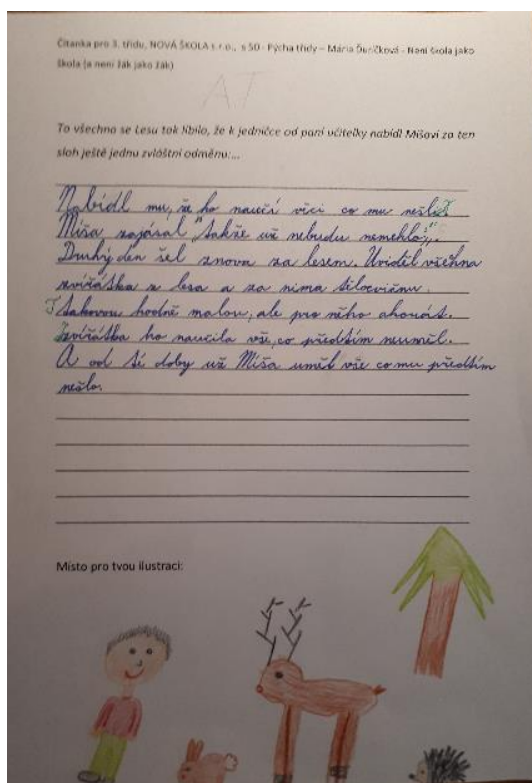 Čítanka pro 3. třídu, NOVÁ ŠKOLA s.r.o., s 50 - Pýcha třídy – Mária Ďuríčková - Není škola jako
škola (a není žák jako žák)
A.T
To všechno se Lesu tak líbilo, že k jedničce od paní učitelky nabídl Míšovi za ten
sloh ještě jednu zvláštní odměnu:...
Nabídl mu, že ho naučí věci co mu nešly.
Míša zajásal "takže už nebudu nemehlo!".
Druhý den šel znova za lesem. Uviděl všechna
zvířátka z lesa a za nima tělocvičnu.
Takovou hodně malou, ale pro něho akorát.
Zvířátka ho naučila vše, co předtím neuměl.
A od té doby už Míša uměl vše co mu předtím
nešlo.
Místo pro tvou ilustraci: